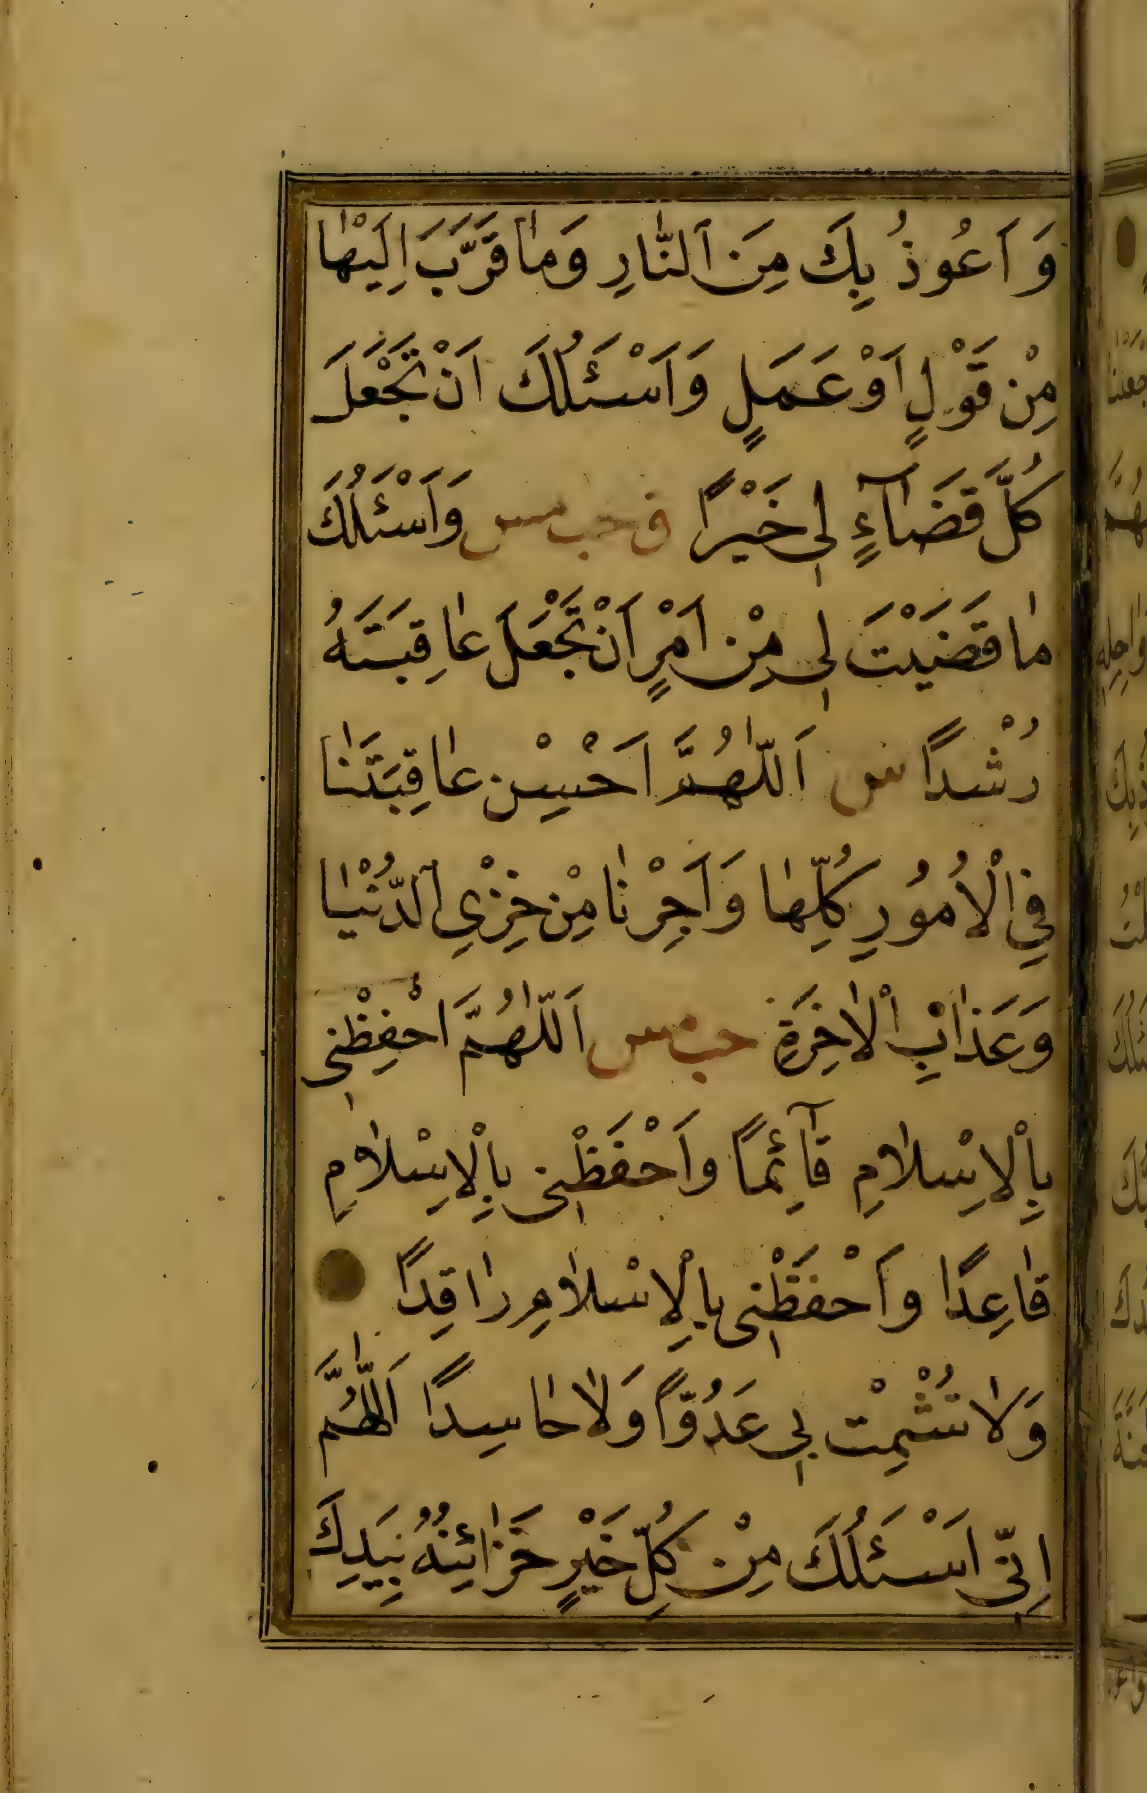 وَاَعُوذُ بِكَ مِنَ النَّارِ وَمَا قَرَّبَ اِلَيْهَا
مِنْ قَوْلٍ اَوْ عَمَلٍ وَاَسْئَلُكَ اَنْ تَجْعَلَ
كُلَّ قَضَآءٍ لِى خَيْرًا ق حب مس وَاَسْئَلُكَ
مَا قَضَيْتَ لِى مِنْ اَمْرٍ اَنْ تَجْعَلَ عَاقِبَتَهُ
رُشْدًا مس اَللّٰهُمَّ اَحْسِنْ عَاقِبَتَنَا
فِى الْاُمُورِ كُلِّهَا وَاَجِرْنَا مِنْ خِزْىِ الدُّنْيَا
وَعَذَابِ الْاٰخِرَةِ حب مس اَللّٰهُمَّ احْفِظْنِى
بِالْاِسْلَامِ قَآئِمًا وَاَحْفَظْنِى بِالْاِسْلَامِ
قَاعِدًا وَاَحْفَظْنِى بِالْاِسْلَامِ رَاقِدًا
وَلَا تُشْمِتْ بِى عَدُوًّا وَلَا حَاسِدًا اَللّٰهُمَّ
اِنِّى اَسْئَلُكَ مِنْ كُلِّ خَيْرٍ خَزَائِنُهُ بِيَدِكَ